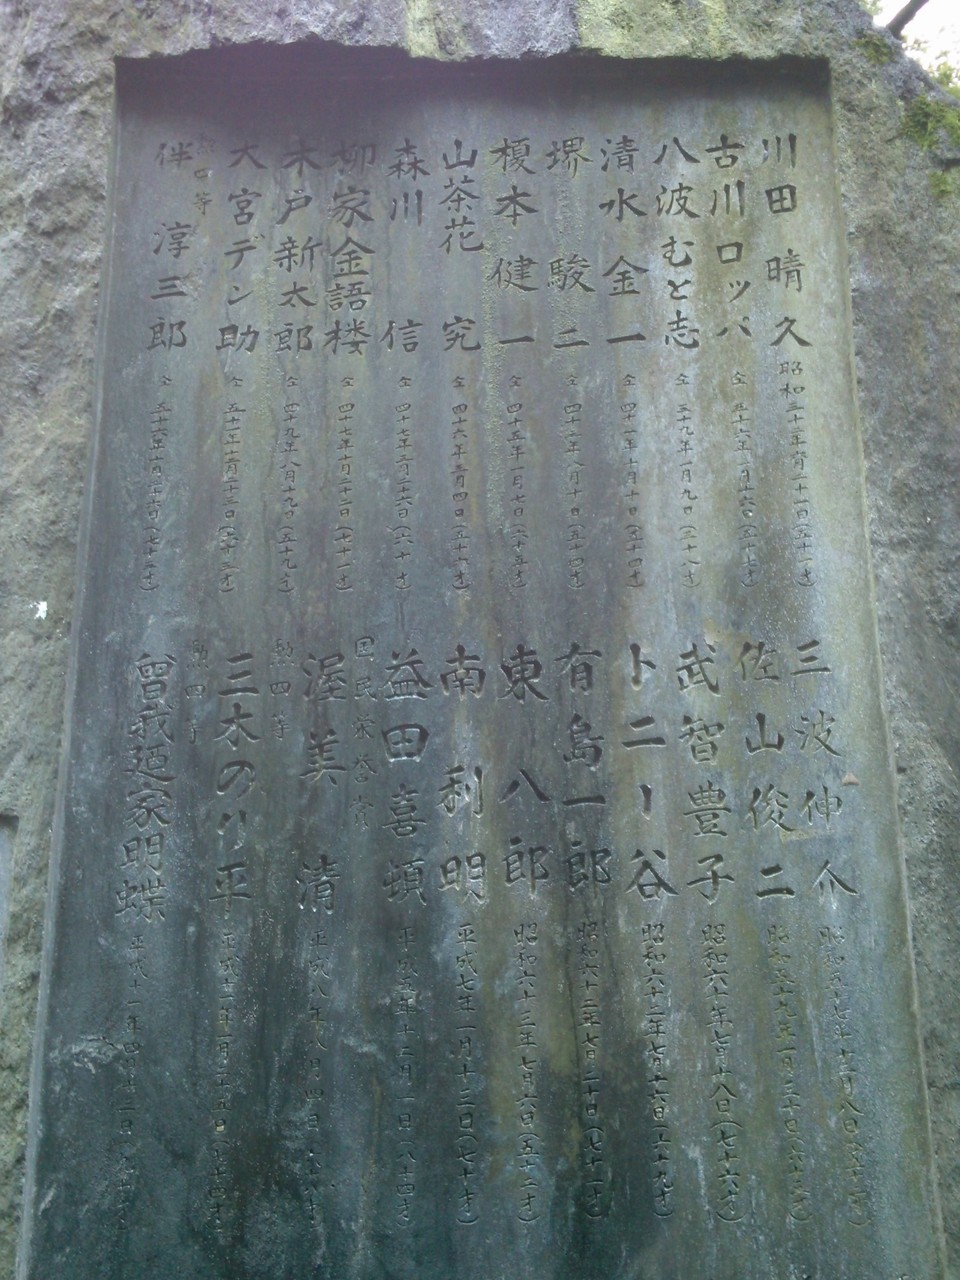 川田晴久 昭和三十二年六月二十一日(五十一才)
古川ロッパ 仝 三十六年一月十六日(五十七才)
八波むと志 仝 三十九年一月九日(三十八才)
清水金一 仝 四十一年十月十日(五十四才)
堺駿二 仝 四十三年八月十日(五十四才)
榎本健一 仝 四十五年一月七日(六十五才)
山茶花究 仝 四十六年三月四日(五十六才)
森川信 仝 四十七年三月二十六日(六十才)
柳家金語楼 仝 四十七年十月二十二日(七十一才)
木戸新太郎 仝 四十九年八月十九日(五十九才)
大宮デン助 仝 五十一年十二月二十三日(六十三才)
勲四等
伴淳三郎 仝 五十六年十月二十六日(七十三才)
三波伸介 昭和五十七年十二月八日
佐山俊二 昭和五十九年一月三十日
武智豊子 昭和六十年七月十八日(七十六才)
トニー谷 昭和六十二年七月十六日(六十九才)
有島一郎 昭和六十二年七月二十日(七十一才)
東八郎 昭和六十三年七月六日(五十二才)
南利明 平成七年一月十三日(七十才)
益田喜頓 平成五年十二月一日(八十四才)
国民栄誉賞
渥美清 平成八年八月四日
勲四等
三木のり平 平成十一年一月二十五日
勲四等
曾我廼家明蝶 平成十一年四月